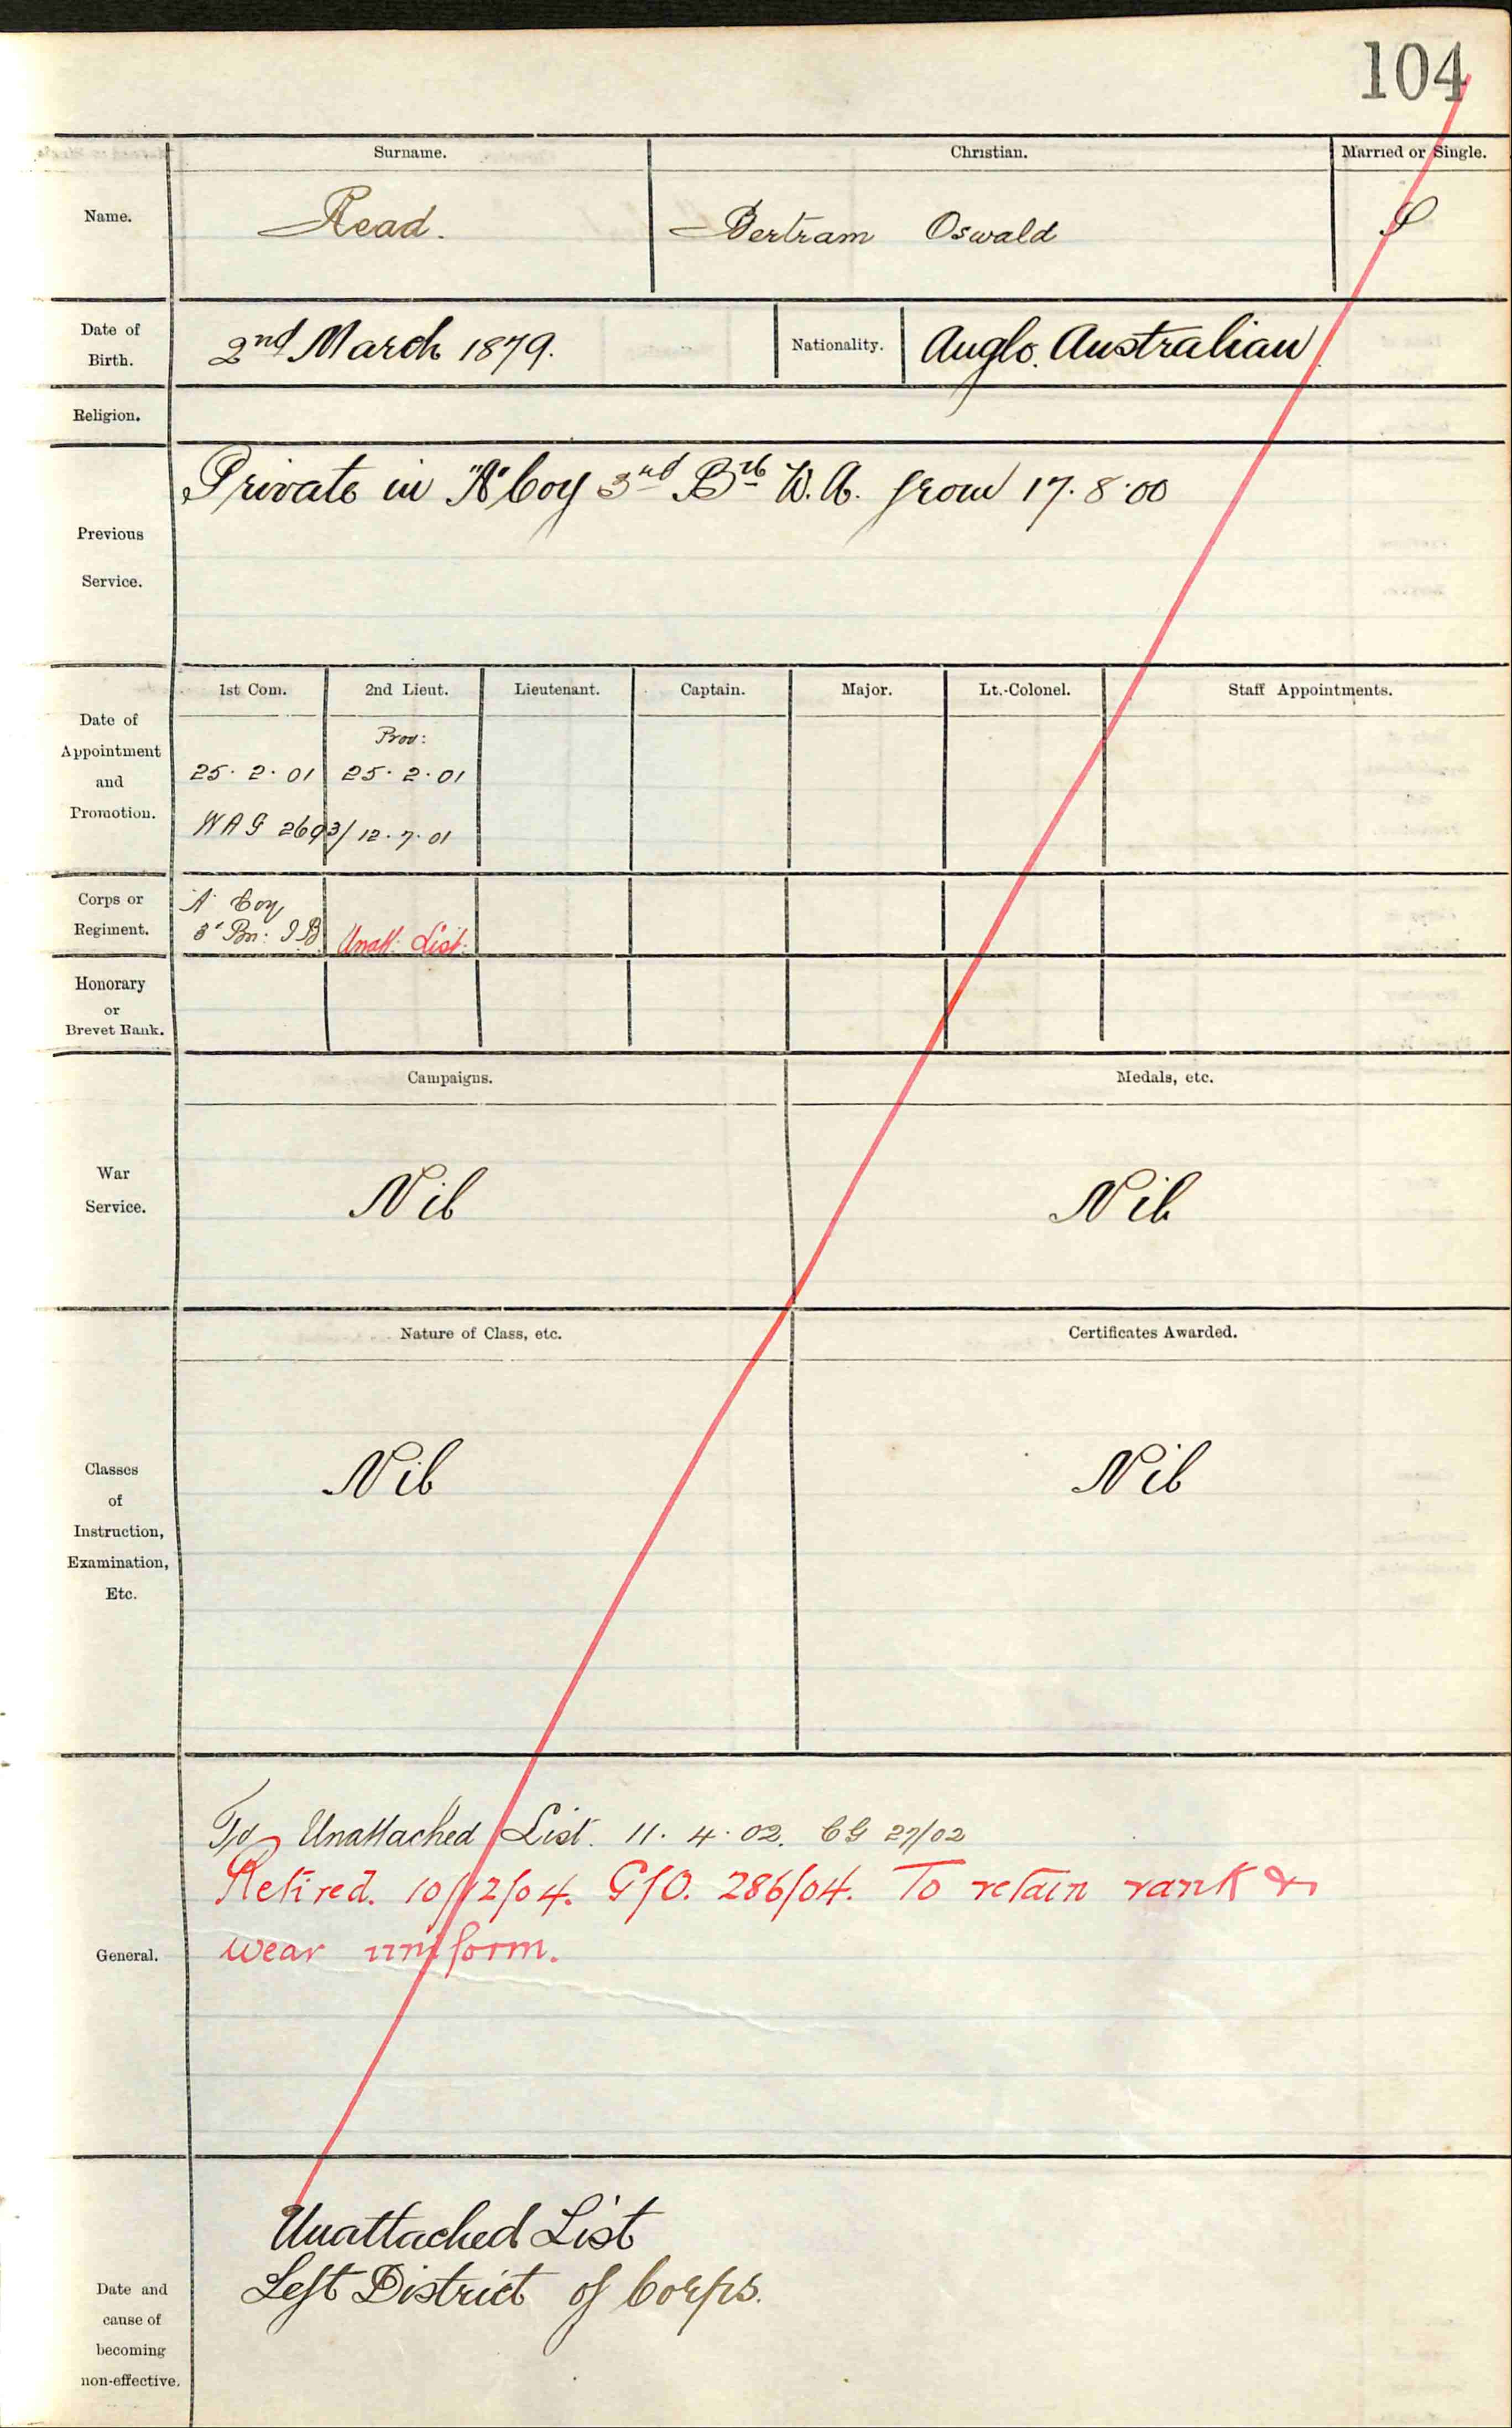 104
Surname. Christian. Married or Single.
Name. Read. Bertram Oswald S
Date of Birth. 2nd March 1879. Nationality. Anglo. Australian
Religion.
Private in "A" Coy 3rd Btn W.A. from 17.8.00
Previous
Service.
1st Com. 2nd Lieut. Lieutenant. Captain. Major. Lt.-Colonel. Staff Appointments.
Date of
Appointment
and
Promotion.
Prov:
25.2.01 25.2.01
WAG 2693/12.7.01
Corps or
Regiment.
A Coy
3rd Bn: I B Unatt: List:
Honorary
or
Brevet Rank.
Campaigns. Medals, etc.
War
Service.
Nil Nil
Nature of Class, etc. Certificates Awarded.
Classes
of
Instruction,
Examination,
Etc.
Nil Nil
To Unattached List. 11.4.02. CG 27/02
Retired. 10/12/04. G/O. 286/04. To retain rank &
General. wear uniform.
Unattached List
Left District of Corps.
Date and
cause of
becoming
non-effective.